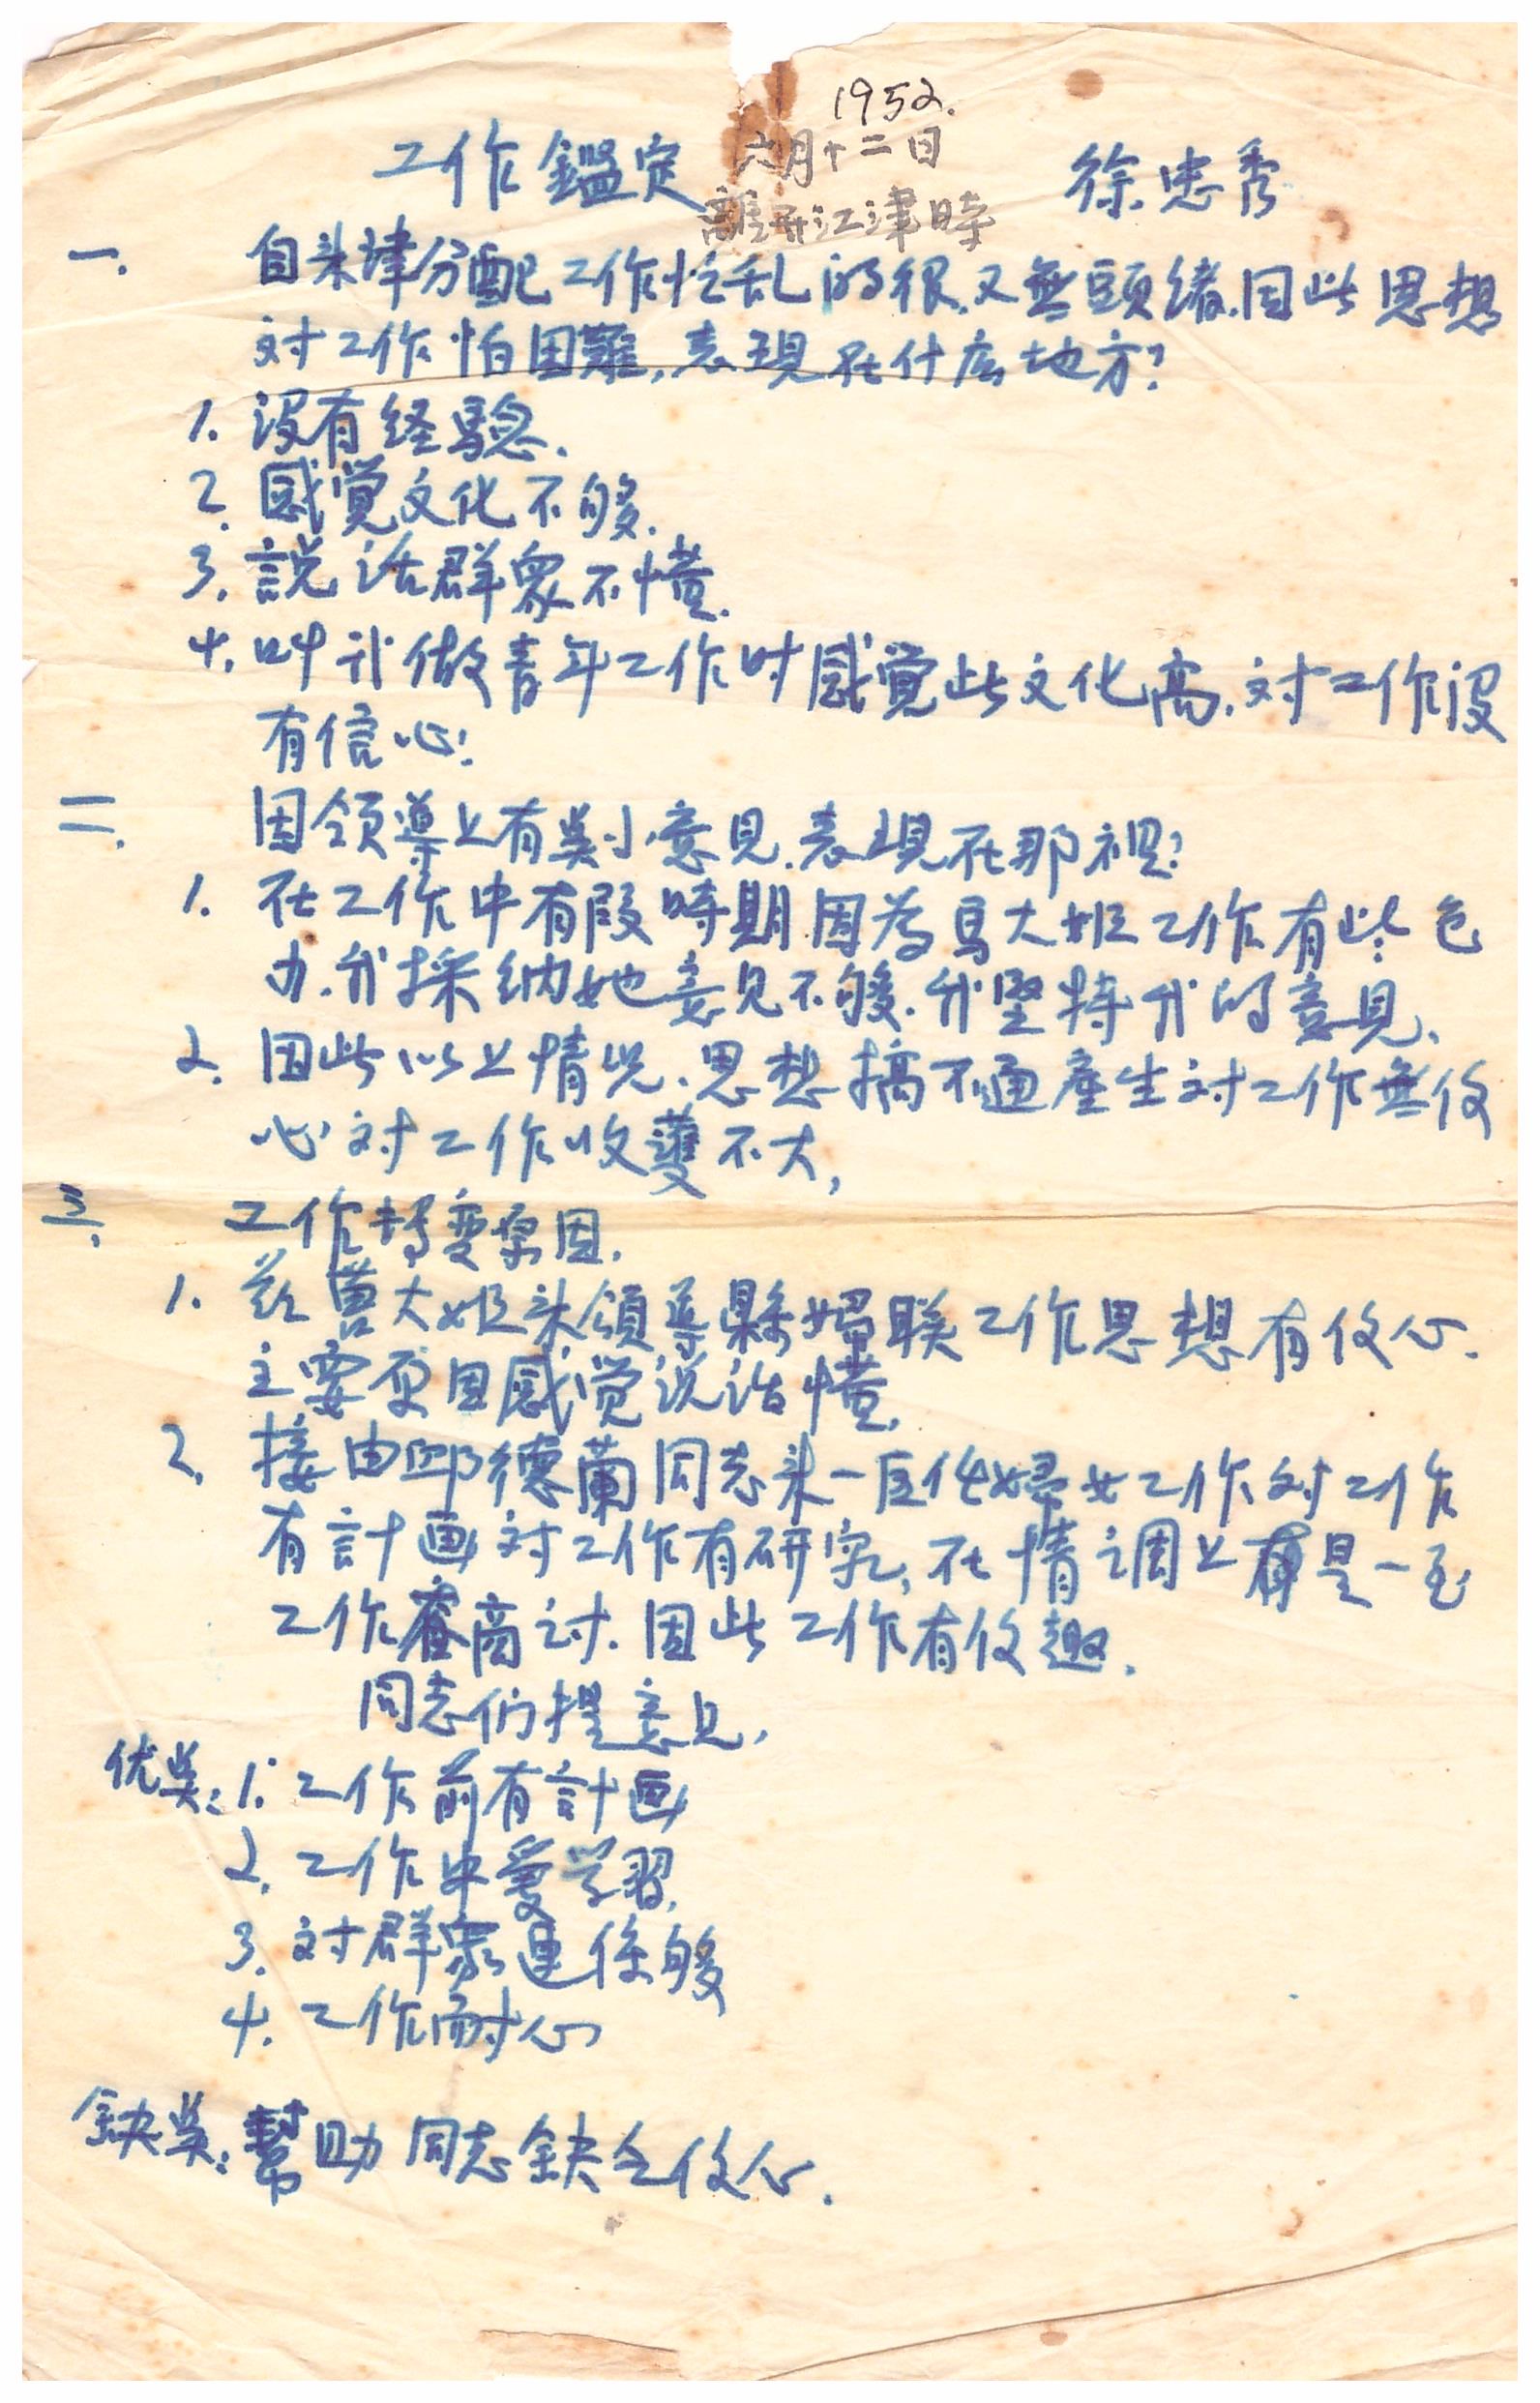 1952.
六月十二日
離开江津時
工作鑑定 徐忠秀
一. 自来津分配工作忙乱的很.又無頭绪.因此思想
对工作怕困難,表現在什庅地方?
1. 没有経驗.
2. 感覚文化不够.
3. 説话群衆不懂.
4. 叫我做青年工作时感覚此文化高.对工作没
有信心!
二. 因领導上有奌小意見.表現在那裡?
1. 在工作中有段時期因为马大姐工作有些包
办.我採纳她意见不够.我堅持我的意見.
2. 因此以上情况.思想搞不通產生对工作無伩
心对工作收獲不大,
三. 工作转变原因.
1. 曹大姐来領導縣婦联工作思想有伩心.
主要原因感觉说话懂,
2. 接由邱德蘭同志来一区做婦女工作对工作
有計画对工作有研究,在情调上是一致
工作商讨.因此工作有伩趣.
同志们提意见,
优奌:1. 工作前有計画
2. 工作中愛学習,
3. 对群衆連係够
4. 工作耐心
缺奌:幫助同志缺乏伩心.